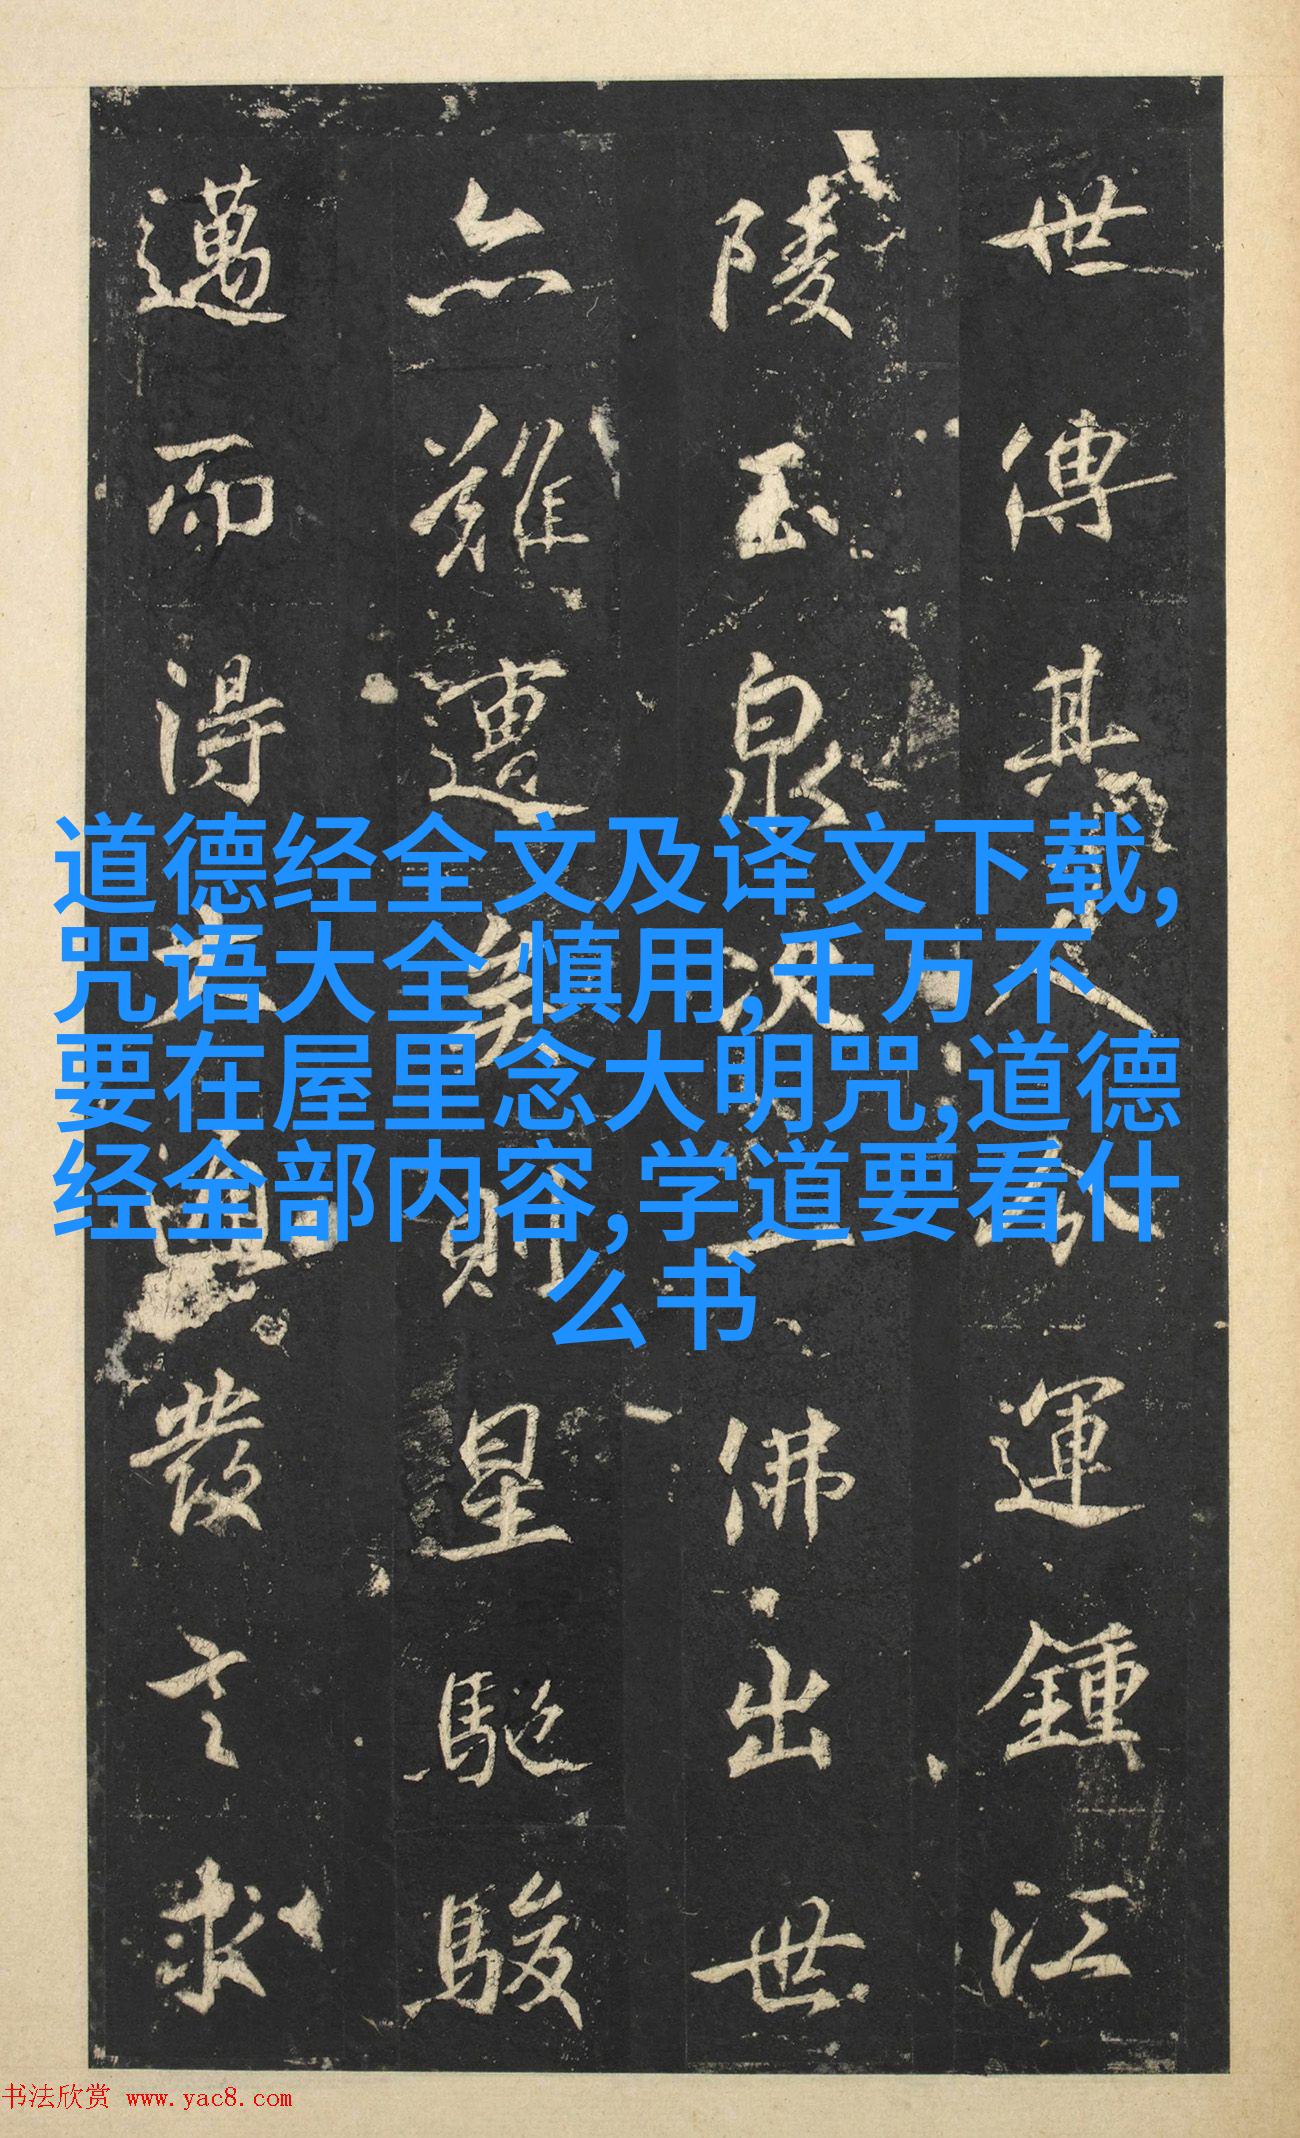 世傳其人運鍾江
陵玉泉次一佛出世
亦難遭矣則星馳駿
邁而得大通發言求
道德经全文及译文下载,
咒语大全 慎用,千万不
要在屋里念大明咒,道德
经全部内容,学道要看什
么书
书法欣赏 www.yac8.com